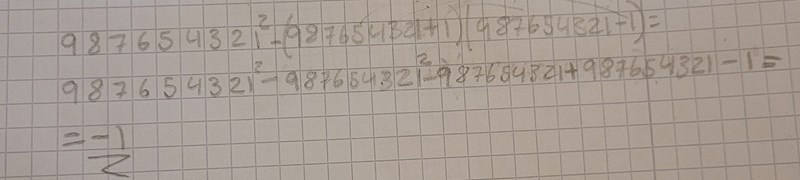 987654321²-(987654321+1)(987654321-1)=
987654321²-987654321²-987654321+987654321-1=
=-1